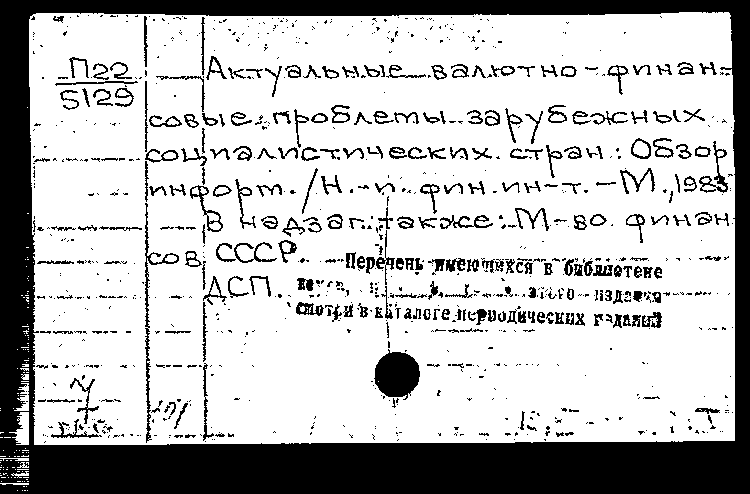 П22
5129
Актуальные валютно-финан-
совые проблемы зарубежных
социалистических стран: Обзор
информ. / Н.-и. фин. ин-т. - М., 1983
В надзаг. также: М-во финан
сов СССР.
ДСП.
Перечень имеющихся в библиотеке
этого издания
смотри в каталоге периодических изданий